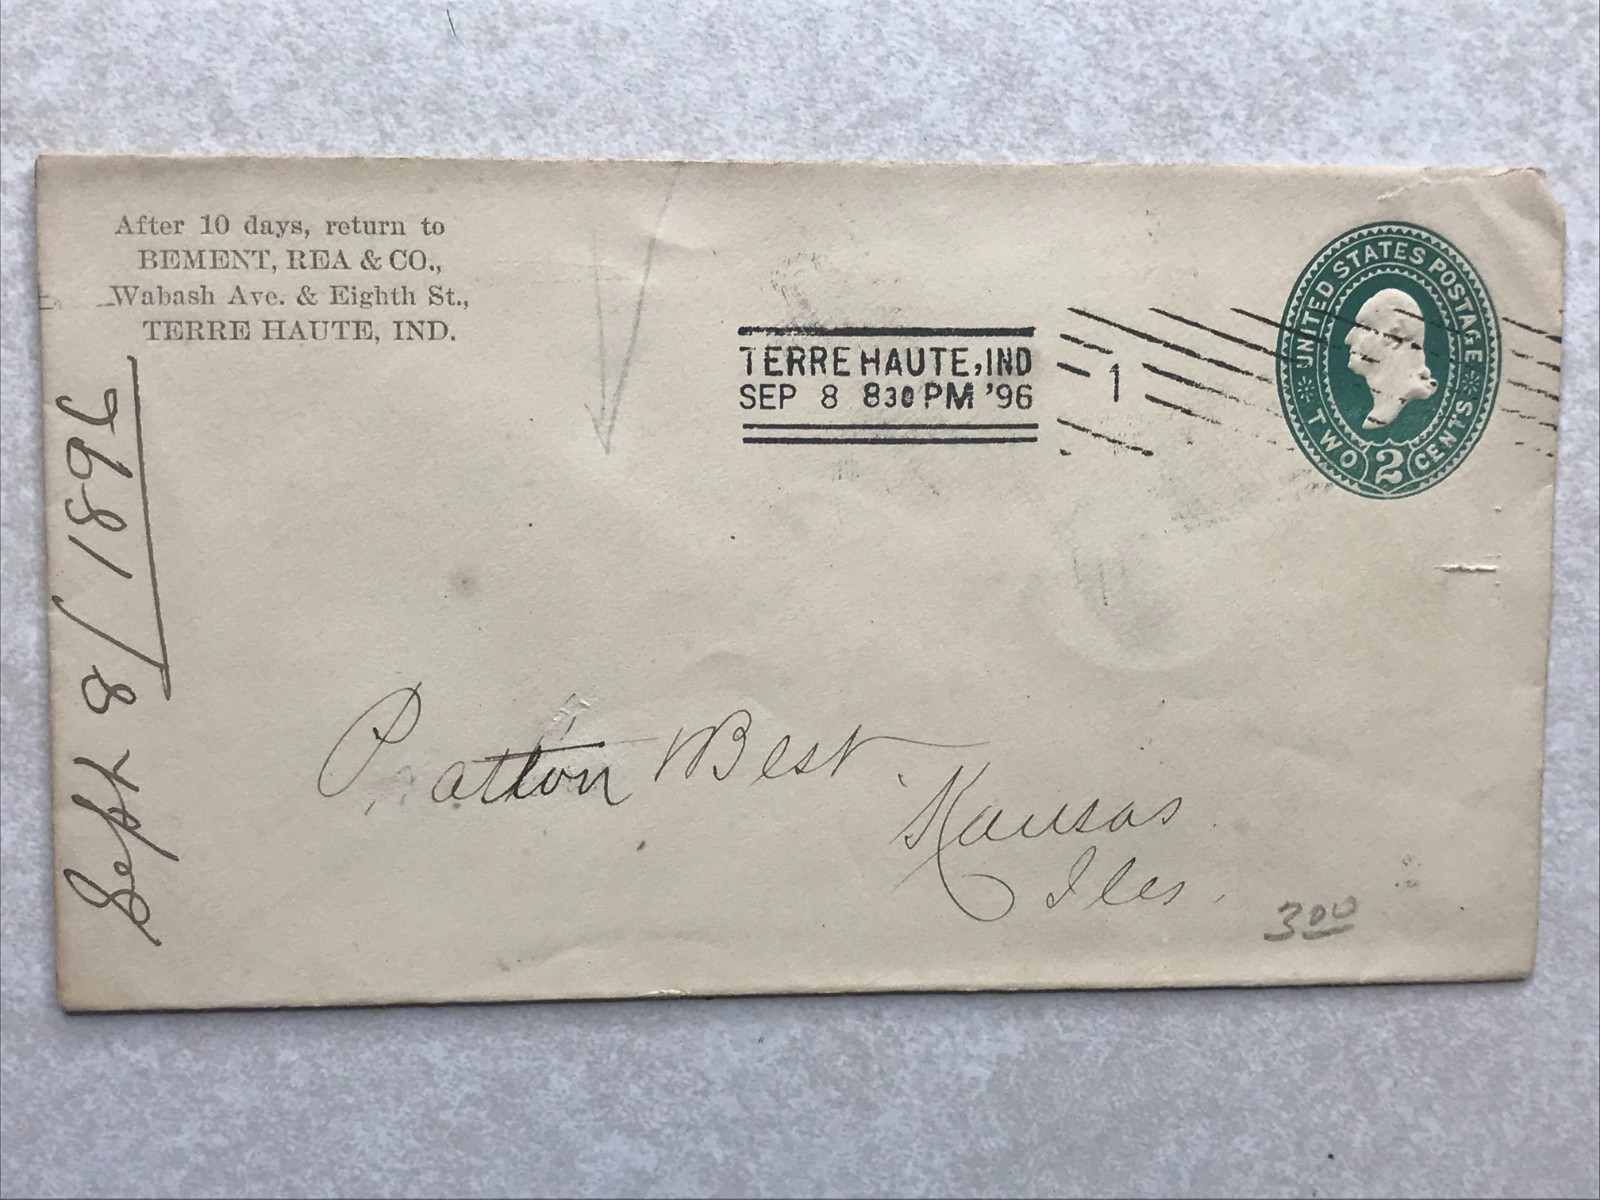 After 10 days, return to
BEMENT, REA & CO.,
Wabash Ave. & Eighth St.,
TERRE HAUTE, IND.
TERRE HAUTE, IND
SEP 8 830 PM '96
1
UNITED STATES POSTAGE
TWO 2 CENTS
Sept 8/1896
Patton Best
Kansas
Ills.
3.00